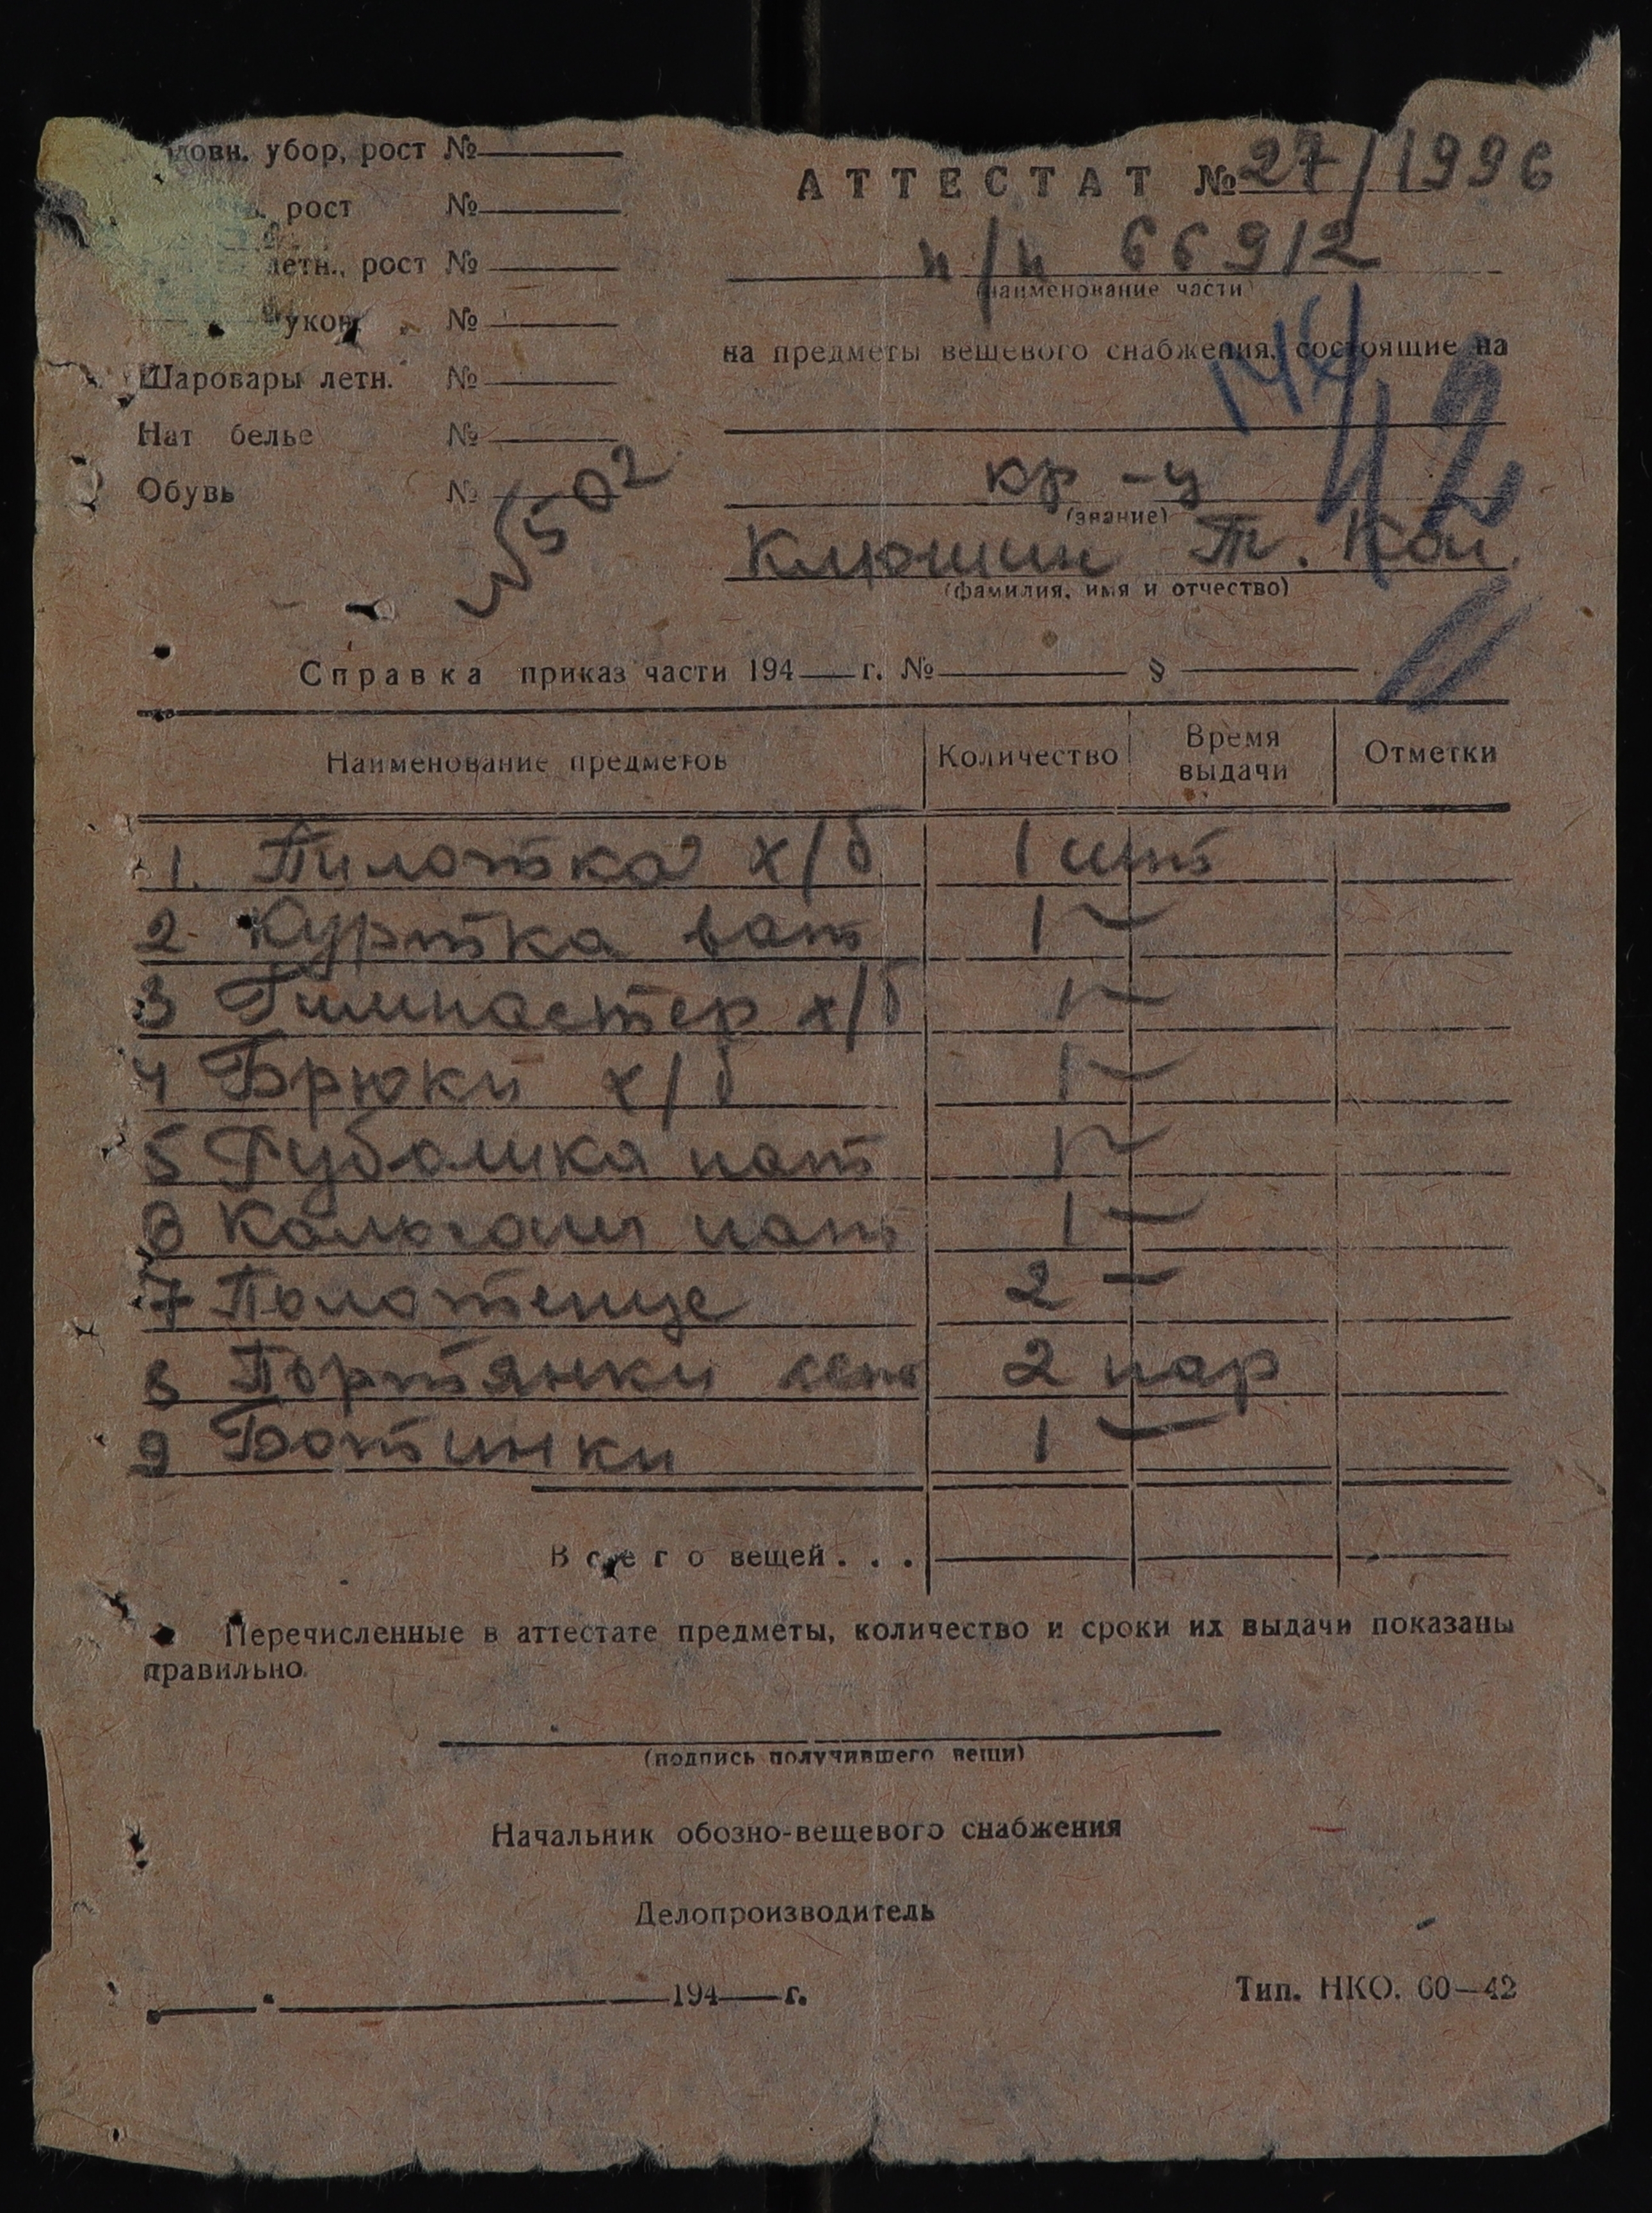 убор, рост №
рост №
летн., рост №
№
Шаровары летн. №
Нат белье №
Обувь №
√502
АТТЕСТАТ № 27/1996
п/п 66912
(наименование части)
на предметы вещевого снабжения, состоящие на
42
кр-ц
(звание)
Клюшин Т.
(фамилия, имя и отчество)
Справка приказ части 194 г. № §
Наименование предметов Количество Время выдачи Отметки
1. Пилотка х/б 1 шт
2. Куртка ват 1 —
3 Гимнастер х/б 1 —
4 Брюки х/б 1 —
5 Рубашка нат 1 —
6 Кальсоны нат 1 —
7 Полотенце 2 —
8 Портянки 2 пар
9 Ботинки 1 —
Всего вещей . . .
Перечисленные в аттестате предметы, количество и сроки их выдачи показаны
правильно.
(подпись получившего вещи)
Начальник обозно-вещевого снабжения
Делопроизводитель
194 г.
Тип. НКО. 60—42